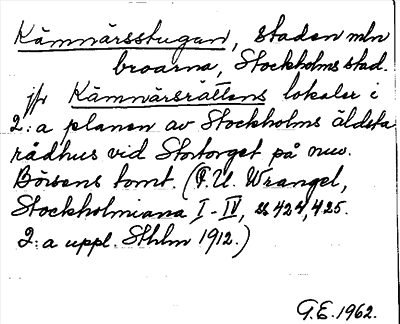 Kämnärsstugan, staden mln
broarna, Stockholms stad.
jfr Kämnärsrättens lokaler i
2:a planen av Stockholms äldsta
rådhus vid Stortorget på nuv.
Börsens tomt. (F.U. Wrangel,
Stockholmiana I-IV, ss 424, 425.
2:a uppl. Sthlm 1912.)
G.E. 1962.